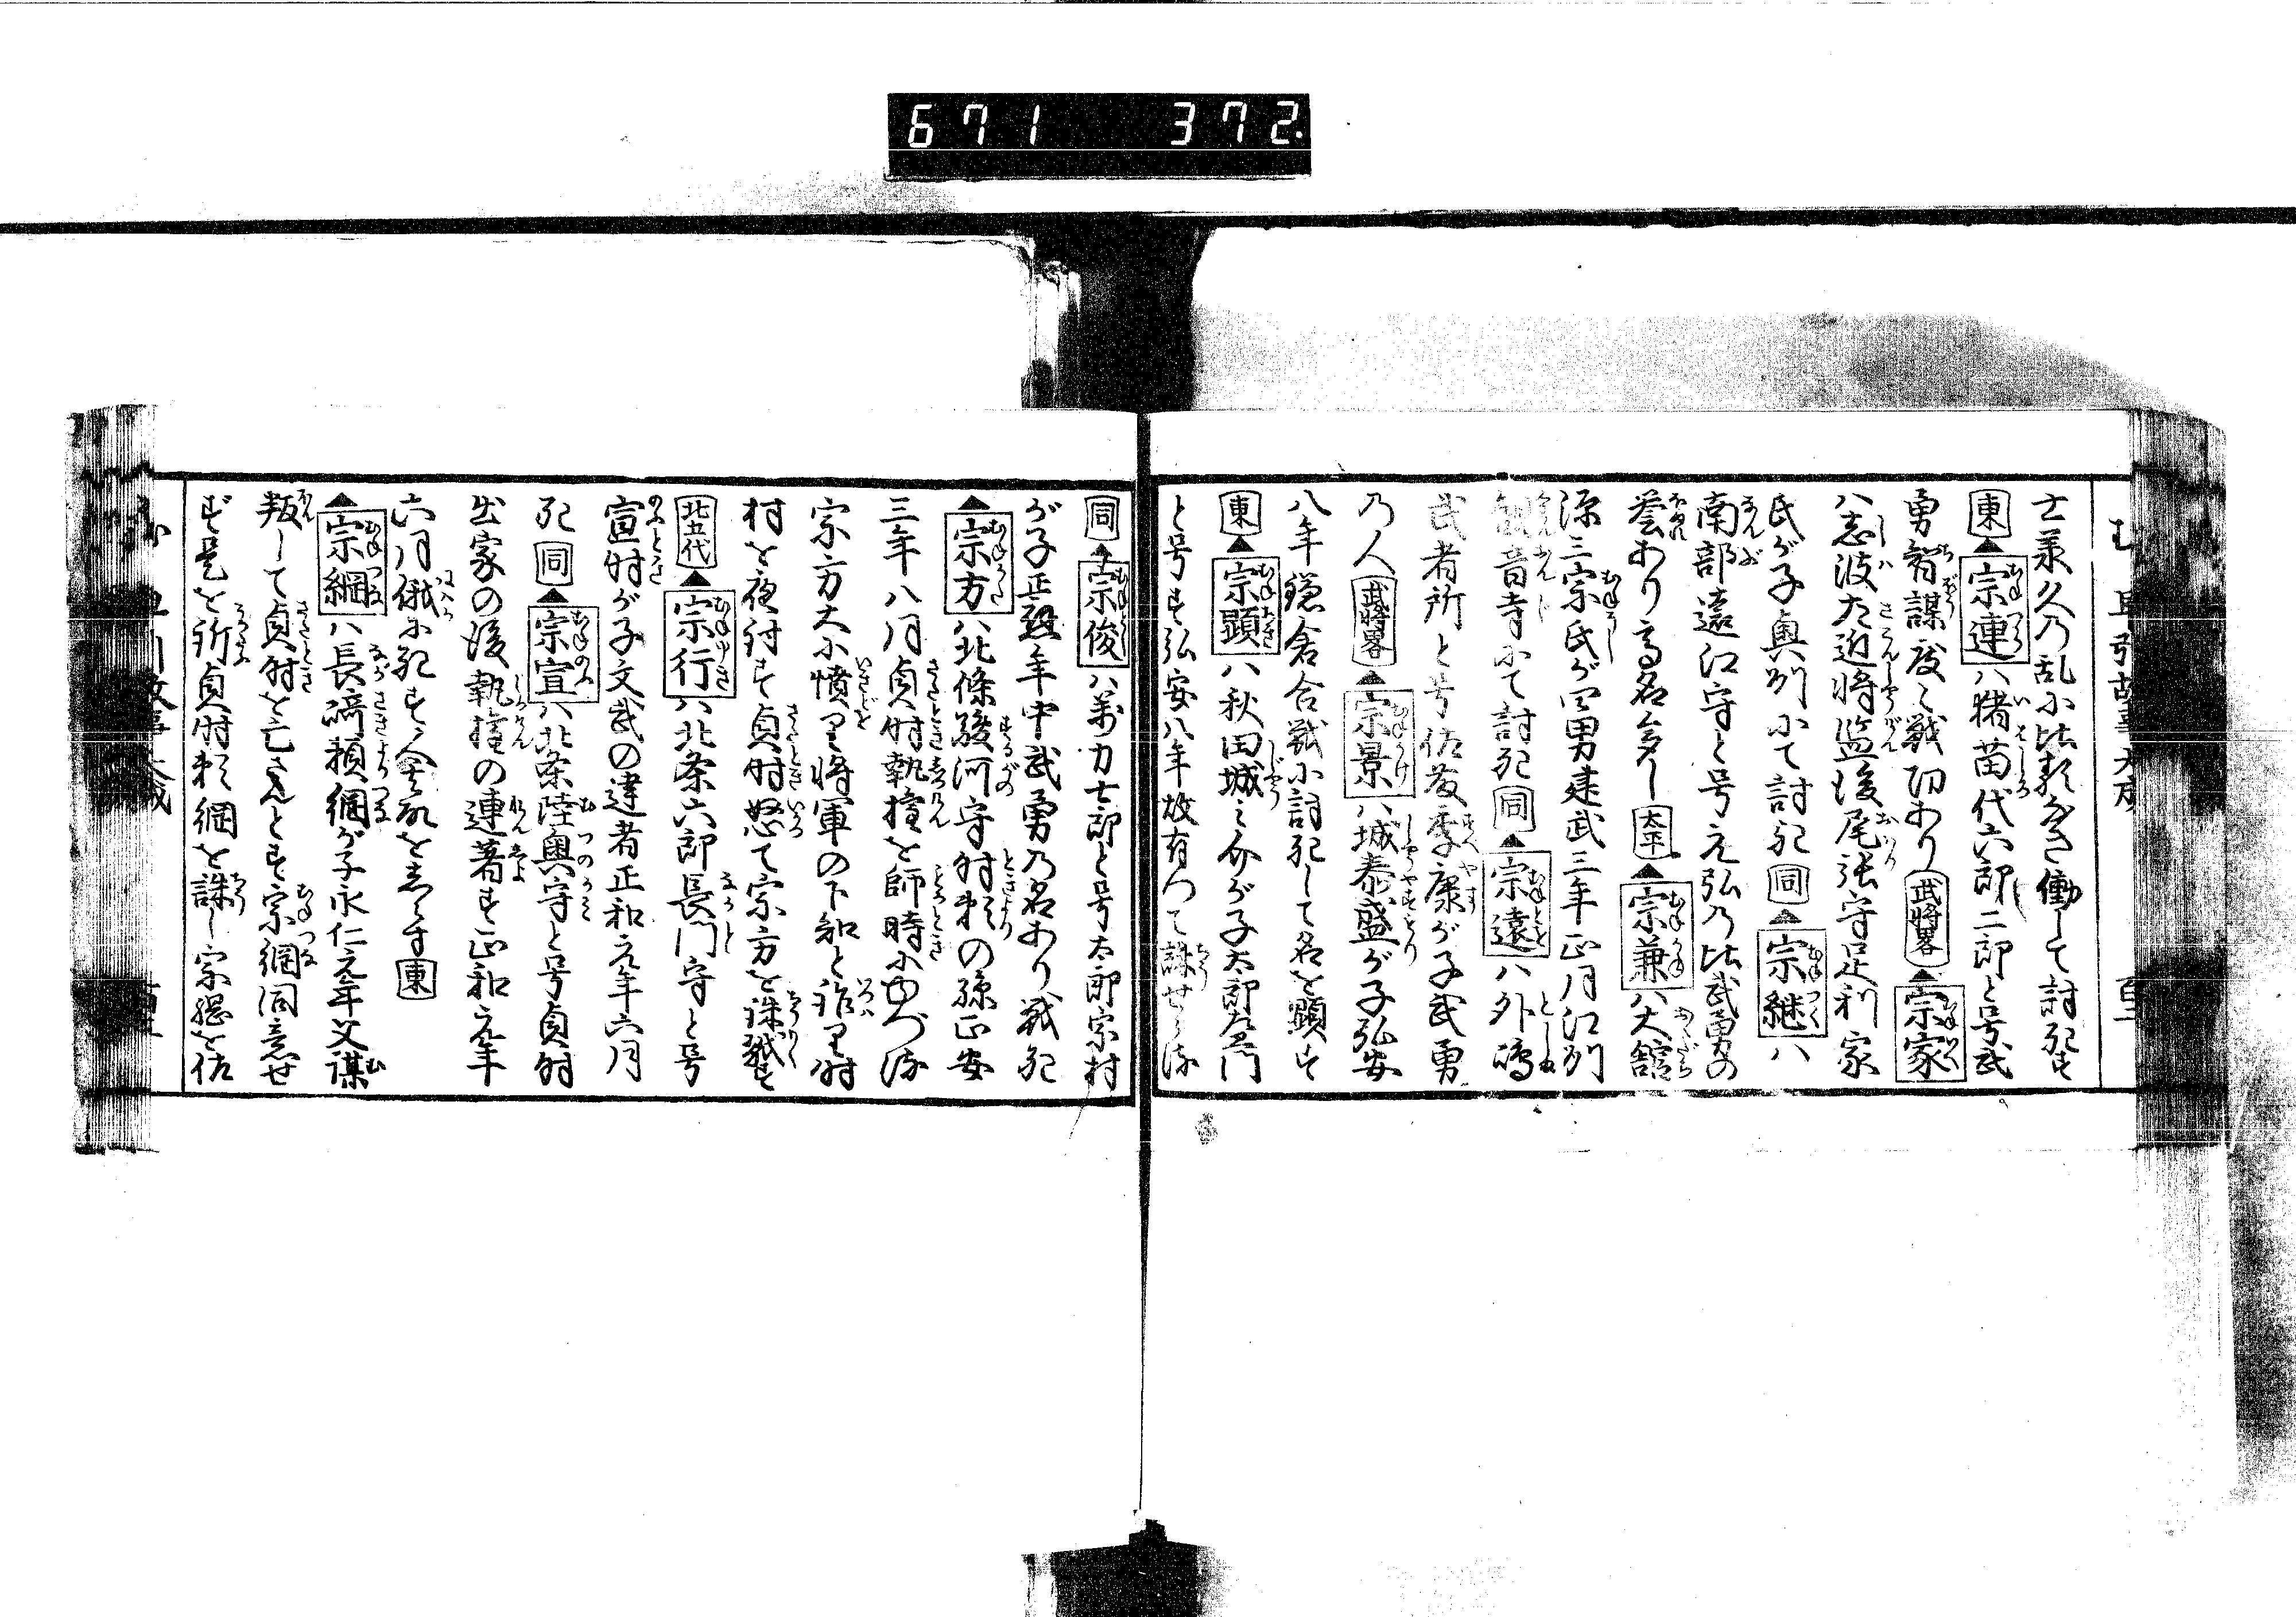 671 372.
士承久乃乱小比類なき働して討死す
東▲宗連ハ猪苗代六郎二郎と号武
勇智謀度々戦功あり武将畧▲宗家
ハ志波左近将監後尾張守足利家
氏が子奥州小て討死同▲宗継ハ
南部遠江守と号元弘乃比武勇の
誉あり高名多し太平▲宗兼ハ大舘
源三宗氏が四男建武三年正月江州
観音寺小て討死同▲宗遠ハ外嶋
武者所と号佐友季康が子武勇
乃人武将畧▲宗景ハ城泰盛が子弘安
八年鎌倉合戦小討死して名を顕す
東▲宗顕ハ秋田城之介が子太郎左衛門
と号す弘安八年故有つて誅せらる
同▲宗俊ハ万力七郎と号太郎宗村
が子正慶年中武勇乃名あり戦死
▲宗方ハ北條駿河守時頼の孫正安
三年八月貞時執権を師時小ゆづる
宗方大小憤り将軍の下知と称り時
村を夜討す貞時怒て宗方を誅戮す
北五代▲宗行ハ北条六郎長門守と号
宣時が子文武の達者正和元年六月
死同▲宗宣ハ北条陸奥守と号貞時
出家の後執権の連署す正和元年
六月俄小死す人其故をしらす東
▲宗綱ハ長崎頼綱が子永仁元年父謀
叛して貞時を亡さんとす宗綱同意せ
ず是を訴貞時頼綱を誅し宗綱を佐